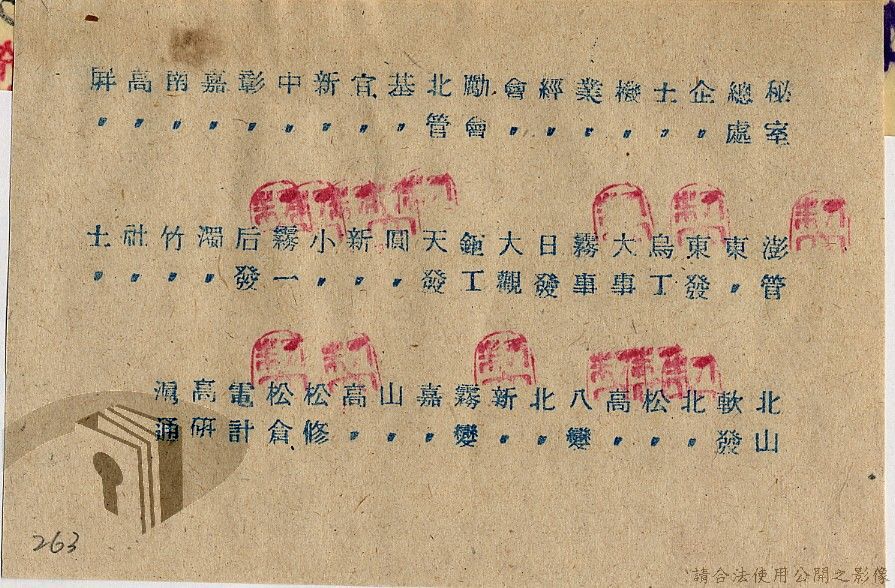 秘室
總處
企〃
士〃
機〃
業〃
經〃
會〃
勵會
北管
基〃
宜〃
新〃
中〃
彰〃
嘉〃
南〃
高〃
屏〃
澎管
東〃
東發
烏工
大事
霧事
日發
大觀
鉅工
天發
圓〃
新〃
小〃
霧一
后發
濁〃
竹〃
社〃
士〃
北山
軟發
北〃
松〃
高〃
八變
北〃
新〃
霧變
嘉〃
山〃
高〃
松修
松倉
電計
高研
通
263
請合法使用公開之影像